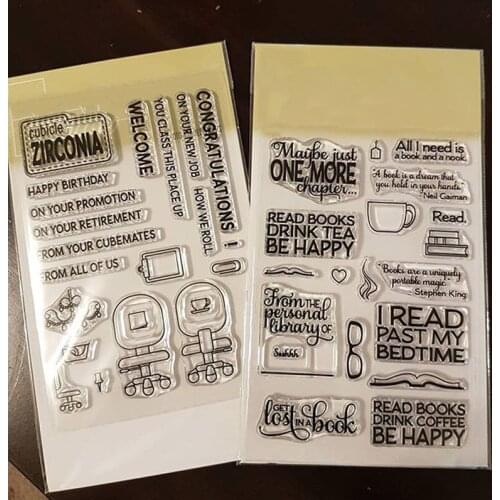 cubicle
ZIRCONIA
HAPPY BIRTHDAY
ON YOUR PROMOTION
ON YOUR RETIREMENT
FROM YOUR CUBEMATES
FROM ALL OF US
WELCOME
YOU CLASS THIS PLACE UP
ON YOUR NEW JOB
CONGRATULATIONS!
HOW WE ROLL
Maybe just
ONE MORE
chapter...
READ BOOKS
DRINK TEA
BE HAPPY
From the
personal
library of
Suhhh
GET
lost IN A book
All I need is
a book and a nook.
A book is a dream that
you hold in your hands.
Neil Gaiman
Read.
"Books are a uniquely
portable magic."
Stephen King
I READ
PAST MY
BEDTIME
READ BOOKS
DRINK COFFEE
BE HAPPY